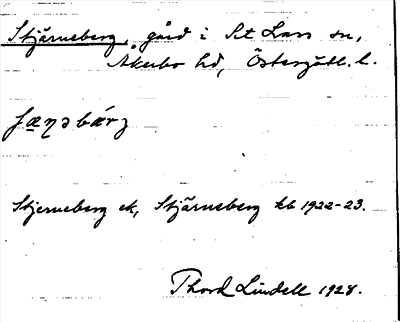 Stjärneberg, gård i St Lars sn,
Åkerbo hd, Östergötl. l.
Stjerneberg ek, Stjärneberg kb 1922-23.
Thord Lindell 1928.